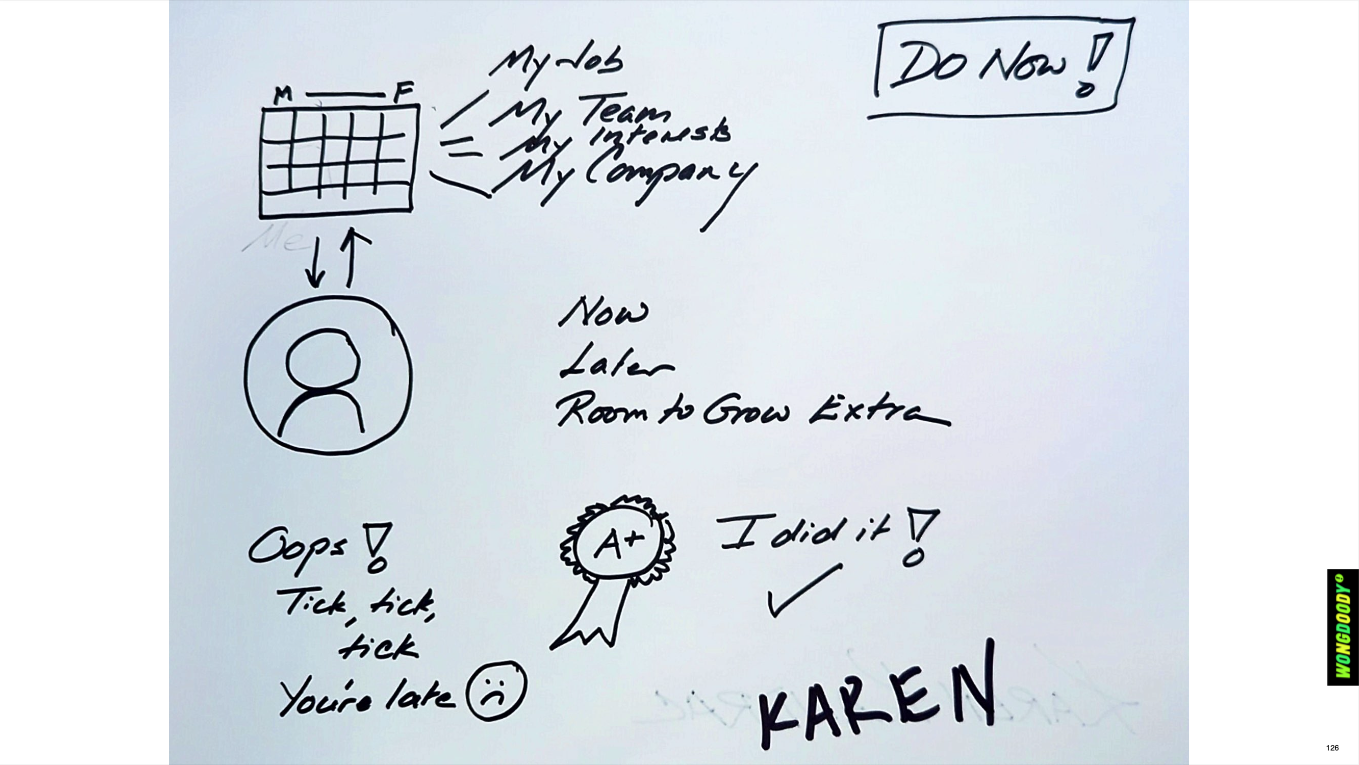 Do Now!
M F
My Job
My Team
My Interests
My Company
Me
Now
Later
Room to Grow Extra
Oops!
Tick, tick,
tick
You're late
A+
I did it!
KAREN
WONGDOODY
126